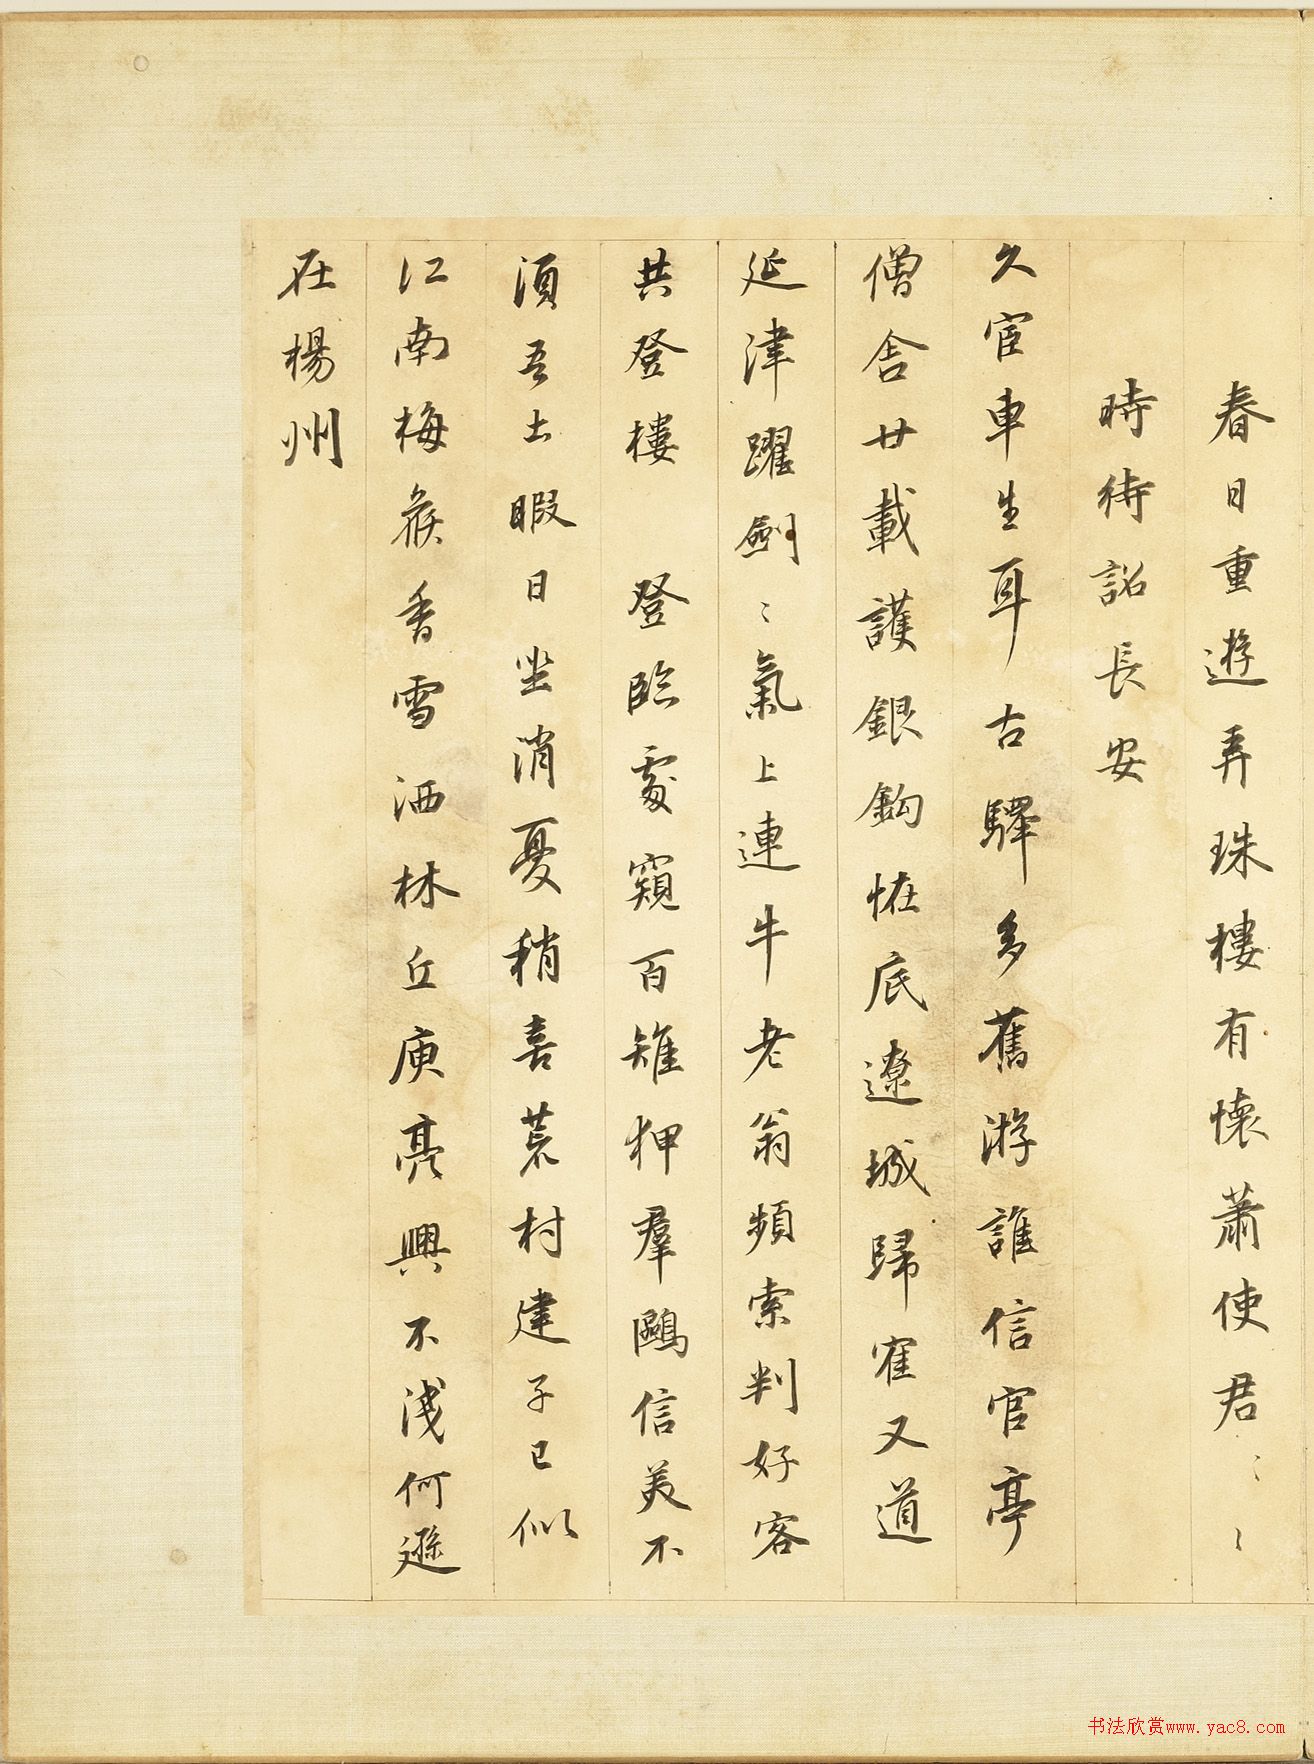 春日重遊弄珠樓有懷蕭使君〻〻
時待詔長安
久宦車生耳古驛多舊游誰信官亭
僧舍廿載護銀鉤恠底遼城歸寉又道
延津躍劍〻氣上連牛老翁頻索判好客
共登樓 登臨處窺百雉狎羣鷗信美不
須吾土暇日坐消憂稍喜荒村建子已似
江南梅候香雪洒林丘庾亮興不淺何遜
在楊州
书法欣赏www.yac8.com